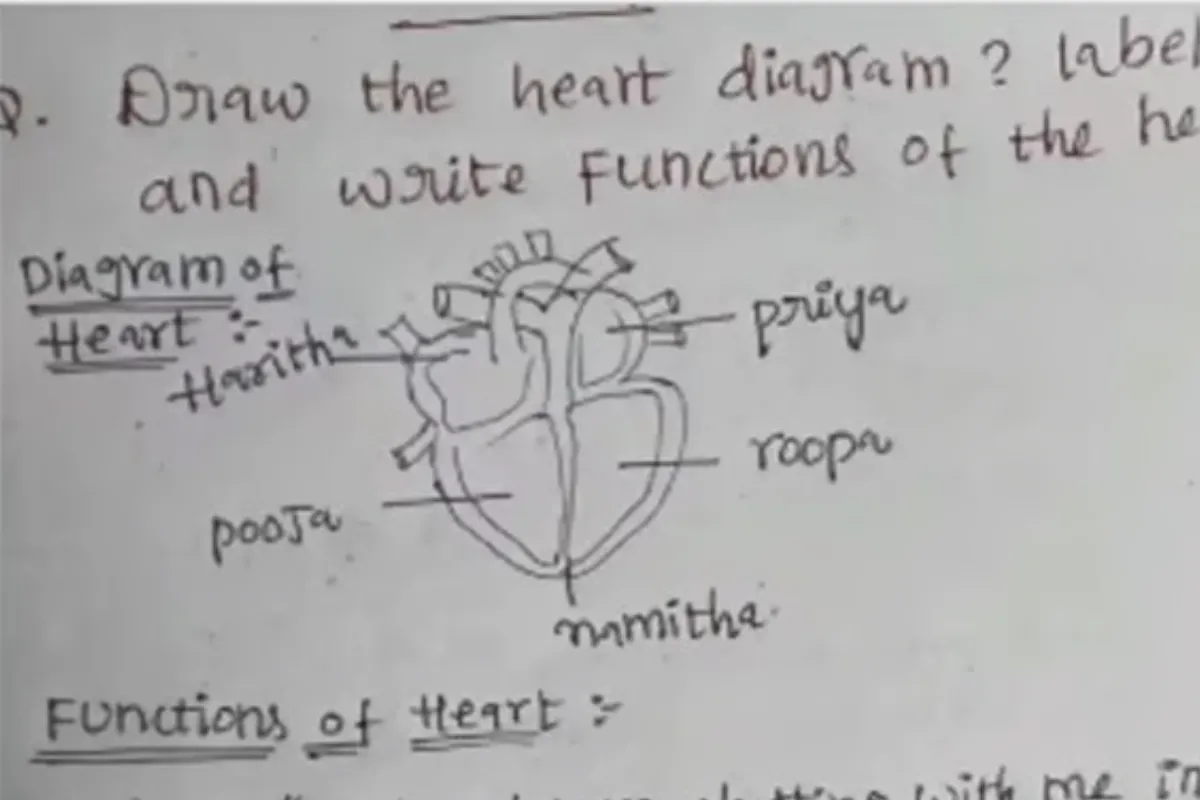 Q. Draw the heart diagram? label
and write Functions of the he
Diagram of
Heart :-
Haritha
priya
roopa
pooja
namitha.
Functions of Heart :-
with me in